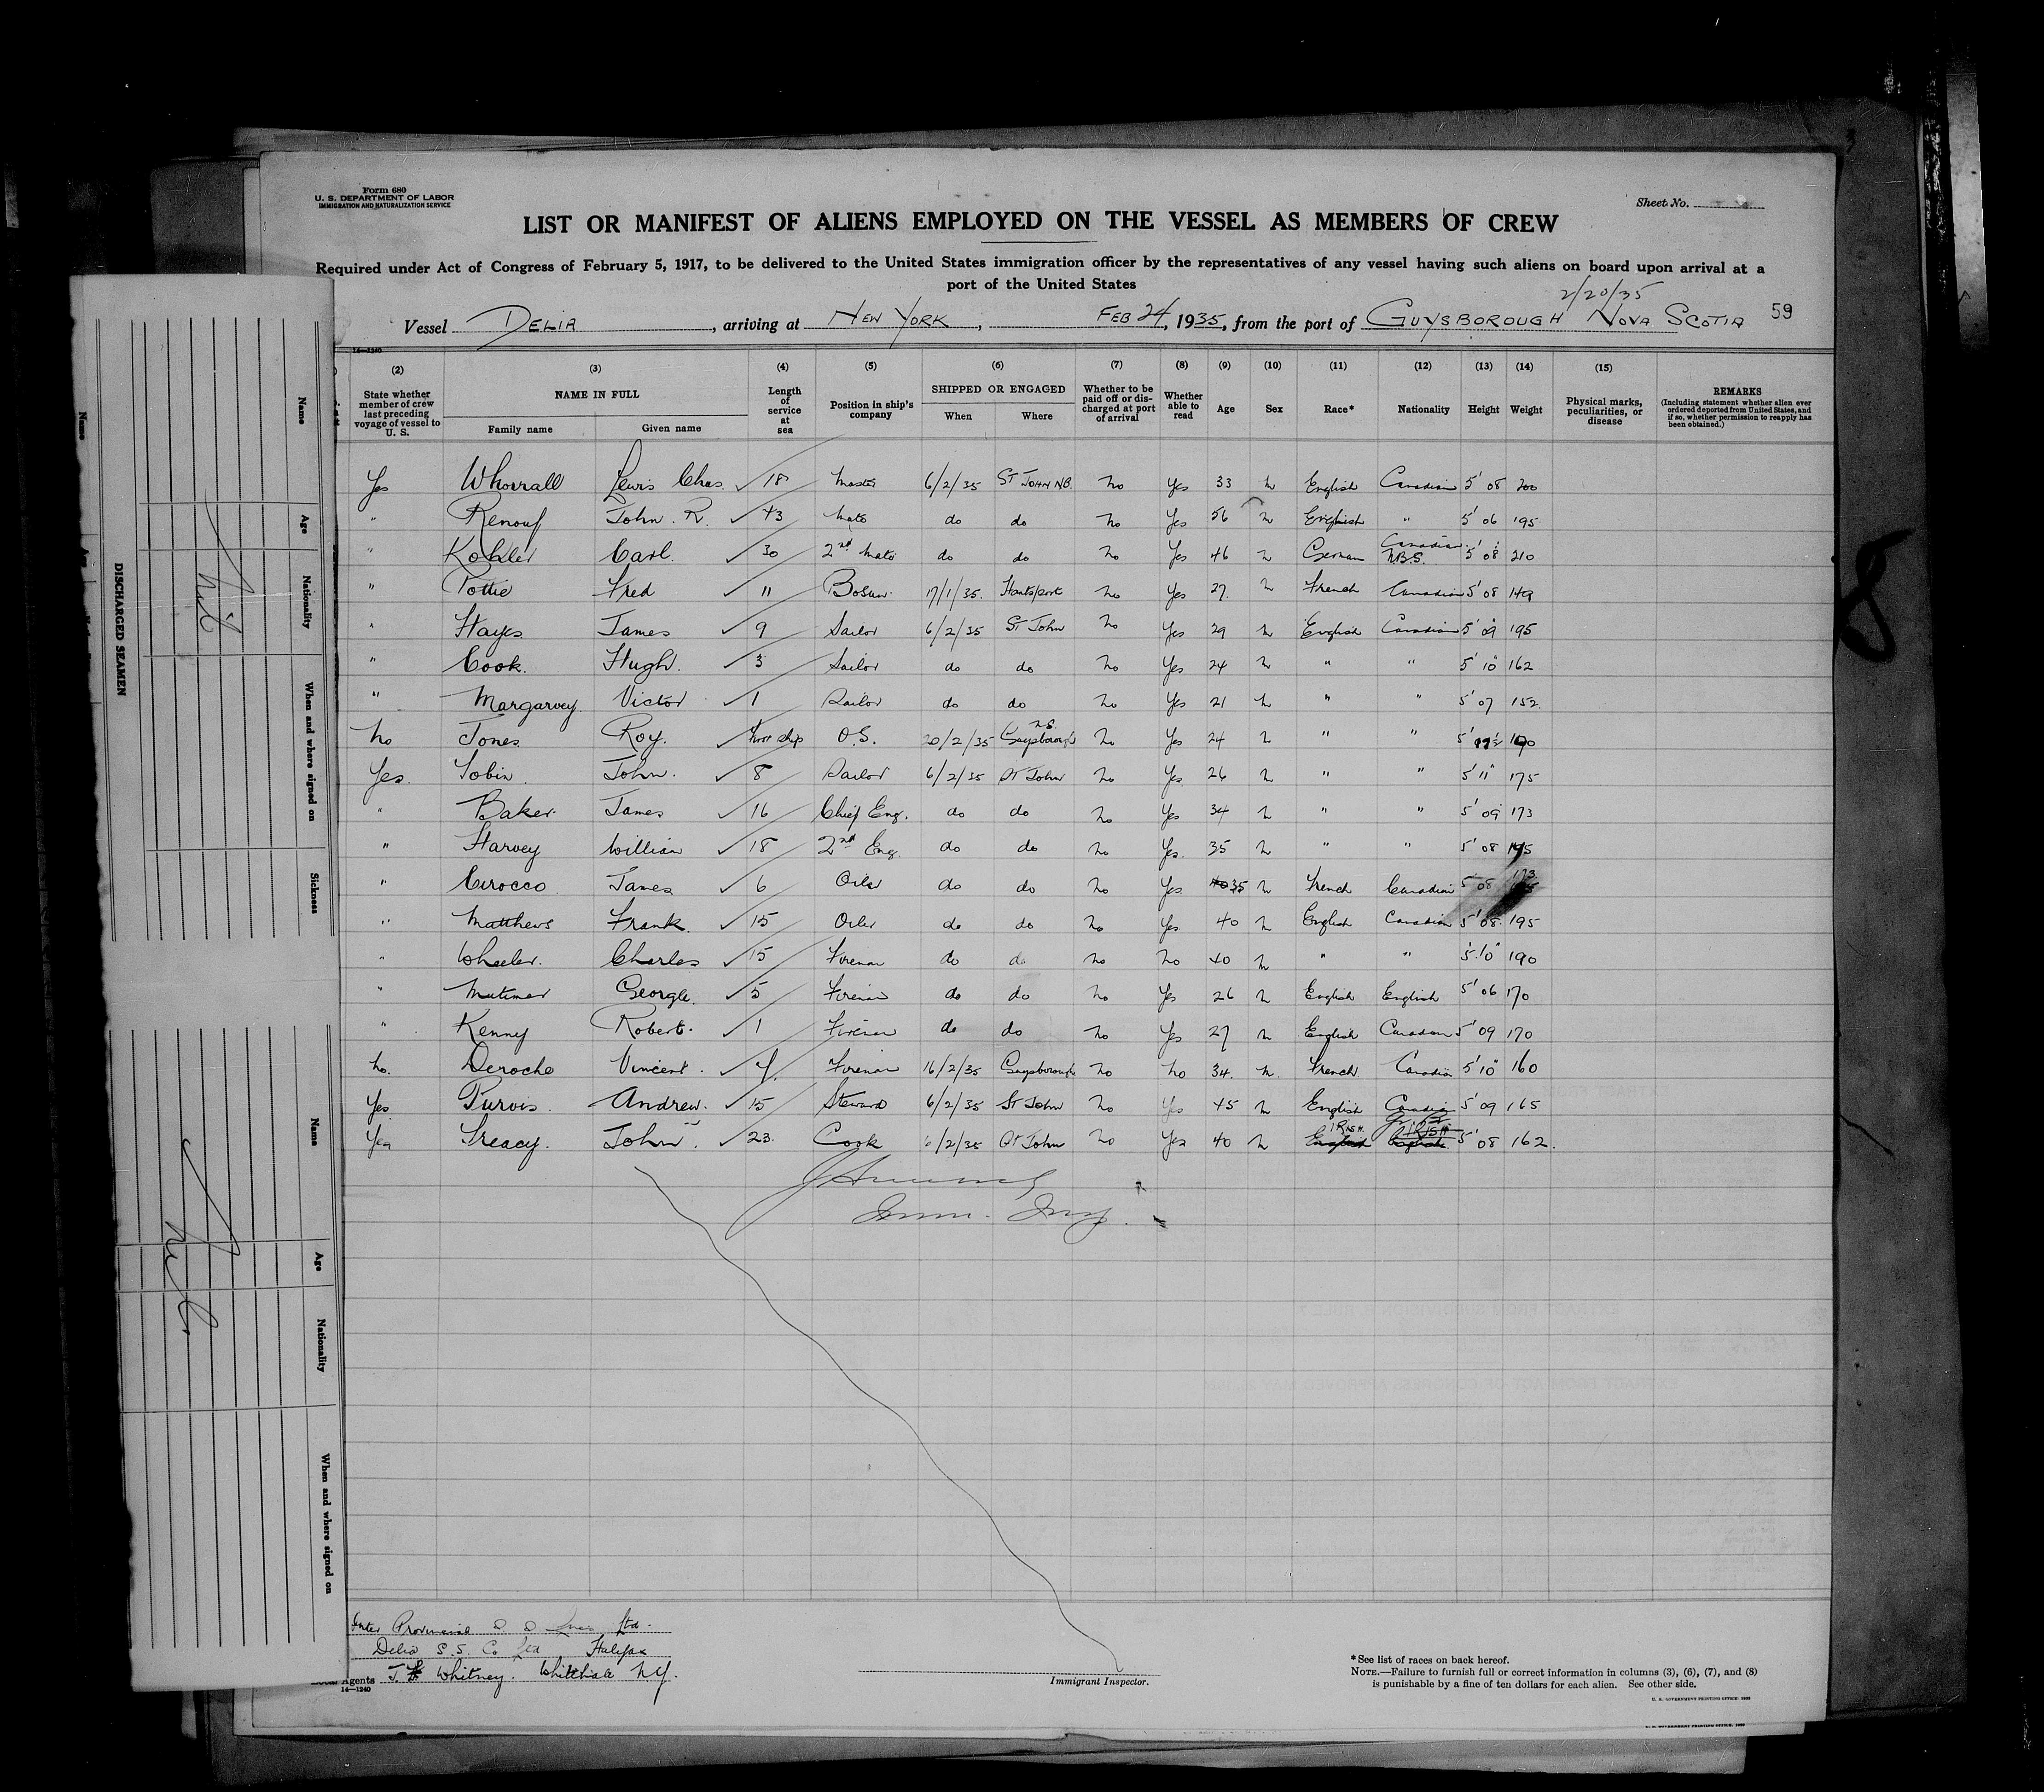 Form 680
U. S. DEPARTMENT OF LABOR
IMMIGRATION AND NATURALIZATION SERVICE
Sheet No.
LIST OR MANIFEST OF ALIENS EMPLOYED ON THE VESSEL AS MEMBERS OF CREW
Required under Act of Congress of February 5, 1917, to be delivered to the United States immigration officer by the representatives of any vessel having such aliens on board upon arrival at a
port of the United States
2/20/35
Vessel DELIA, arriving at NEW YORK, FEB 24, 1935, from the port of GUYSBOROUGH NOVA SCOTIA 59
14—1240
(2) (3) (4) (5) (6) (7) (8) (9) (10) (11) (12) (13) (14) (15)
State whether member of crew last preceding voyage of vessel to U. S. NAME IN FULL Family name Given name Length of service at sea Position in ship's company SHIPPED OR ENGAGED When Where Whether to be paid off or discharged at port of arrival Whether able to read Age Sex Race* Nationality Height Weight Physical marks, peculiarities, or disease REMARKS (Including statement whether alien ever ordered deported from United States, and if so, whether permission to reapply has been obtained.)
Yes Whorrall Lewis Chas. 18 Master 6/2/35 ST JOHN NB. No Yes 33 M English Canadian 5' 08 200
" Renouf John. R. 43 Mate do do No Yes 56 M English " 5' 06 195
" Kohler Carl. 30 2nd Mate do do No Yes 46 M German Canadian N.B.S. 5' 08 210
" Pottie Fred 11 Bosun 17/1/35. Hantsport No Yes 27. M French Canadian 5' 08 149
" Hayes James 9 Sailor 6/2/35 St John No Yes 29 M English Canadian 5' 09 195
" Cook. Hugh. 3 Sailor do do No Yes 24 M " " 5' 10" 162
" Margarvey. Victor 1 Sailor do do No Yes 21 M " " 5' 07 152
No Jones Roy. First ship O.S. 20/2/35 Guysborough N.S. No Yes 24 M " " 5'
Yes. Tobin. John. 8 Sailor 6/2/35 St John No Yes 26 M " " 5' 11" 175
" Baker. James 16 Chief Eng. do do No Yes 34 M " " 5' 09 173
" Harvey William 18 2nd Eng. do do No Yes. 35 M " " 5' 08
" Cirocco James 6 Oiler do do No Yes 40 35 M French Canadian 5' 08 173
" Matthews Frank. 15 Oiler do do No Yes 40 M English Canadian 5' 08. 195
" Wheeler. Charles 15 Fireman do do No No 40 M " " 5' 10" 190
" Mutimer George. 5 Fireman do do No Yes 26 M English English 5' 06 170
" Kenny Robert. 1 Fireman do do No Yes 27 M English Canadian 5' 09 170
No. Deroche Vincent. 4. Fireman 16/2/35 Guysborough No No 34. M. French Canadian 5' 10" 160
Yes Purvis. Andrew. 15 Steward 6/2/35 St John No Yes 45 M English Canadian 5' 09 165
Yes Treacy. John. 23. Cook 6/2/35 St John No Yes 40 M English IRISH English IRISH 5' 08 162.
Imm. Insp.
Inter Provincial S S Lines Ltd.
Delia S.S. Co Ltd Halifax
Agents J. Whitney. Whitehall N.Y.
14—1240
Immigrant Inspector.
*See list of races on back hereof.
NOTE.—Failure to furnish full or correct information in columns (3), (6), (7), and (8)
is punishable by a fine of ten dollars for each alien. See other side.
U. S. GOVERNMENT PRINTING OFFICE: 1932
DISCHARGED SEAMEN
Name Age Nationality When and where signed on Sickness
Nil
Name Age Nationality When and where signed on
Nil
8